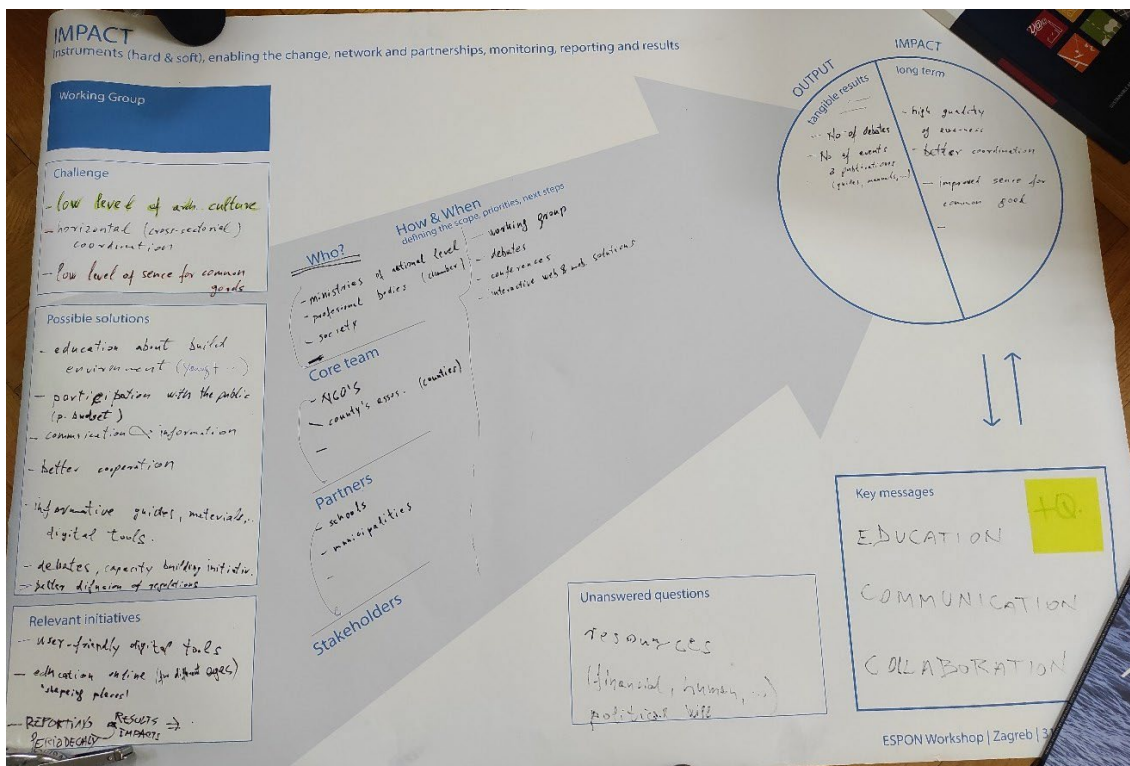 IMPACT
Instruments (hard & soft), enabling the change, network and partnerships, monitoring, reporting and results
Working Group
Challenge
- low level of arch. culture
- horizontal (cross-sectorial)
coordination
- low level of sence for common
goods
Possible solutions
- education about build
environment (young + ...)
- participation with the public
(p. budget)
- information
- better cooperation
- informative guides, materials,..
digital tools.
- debates, capacity building
- better difusion of
Relevant initiatives
- user-friendly digital tools
- education online (for different ages)
'shaping places'
- REPORTING RESULTS
IMPACTS
Who?
- ministries of national level
- profesional bodies (chamber)
- society
-
Core team
- NGO'S
- county's assos. (counties)
-
Partners
- schools
- municipalities
-
Stakeholders
How & When
defining the scope, priorities, next steps
- working group
- debates
- conferences
- interactive web & mob. solutions
OUTPUT
tangible results
- No of debates
- No of events
& publications
(guides, manuals,...)
IMPACT
long term
- high quality
of
- better coordination
- improved sense for
common good
-
Unanswered questions
resources
(financial, human,...)
political will
Key messages
+Q.
EDUCATION
COMMUNICATION
COLLABORATION
ESPON Workshop | Zagreb | 31